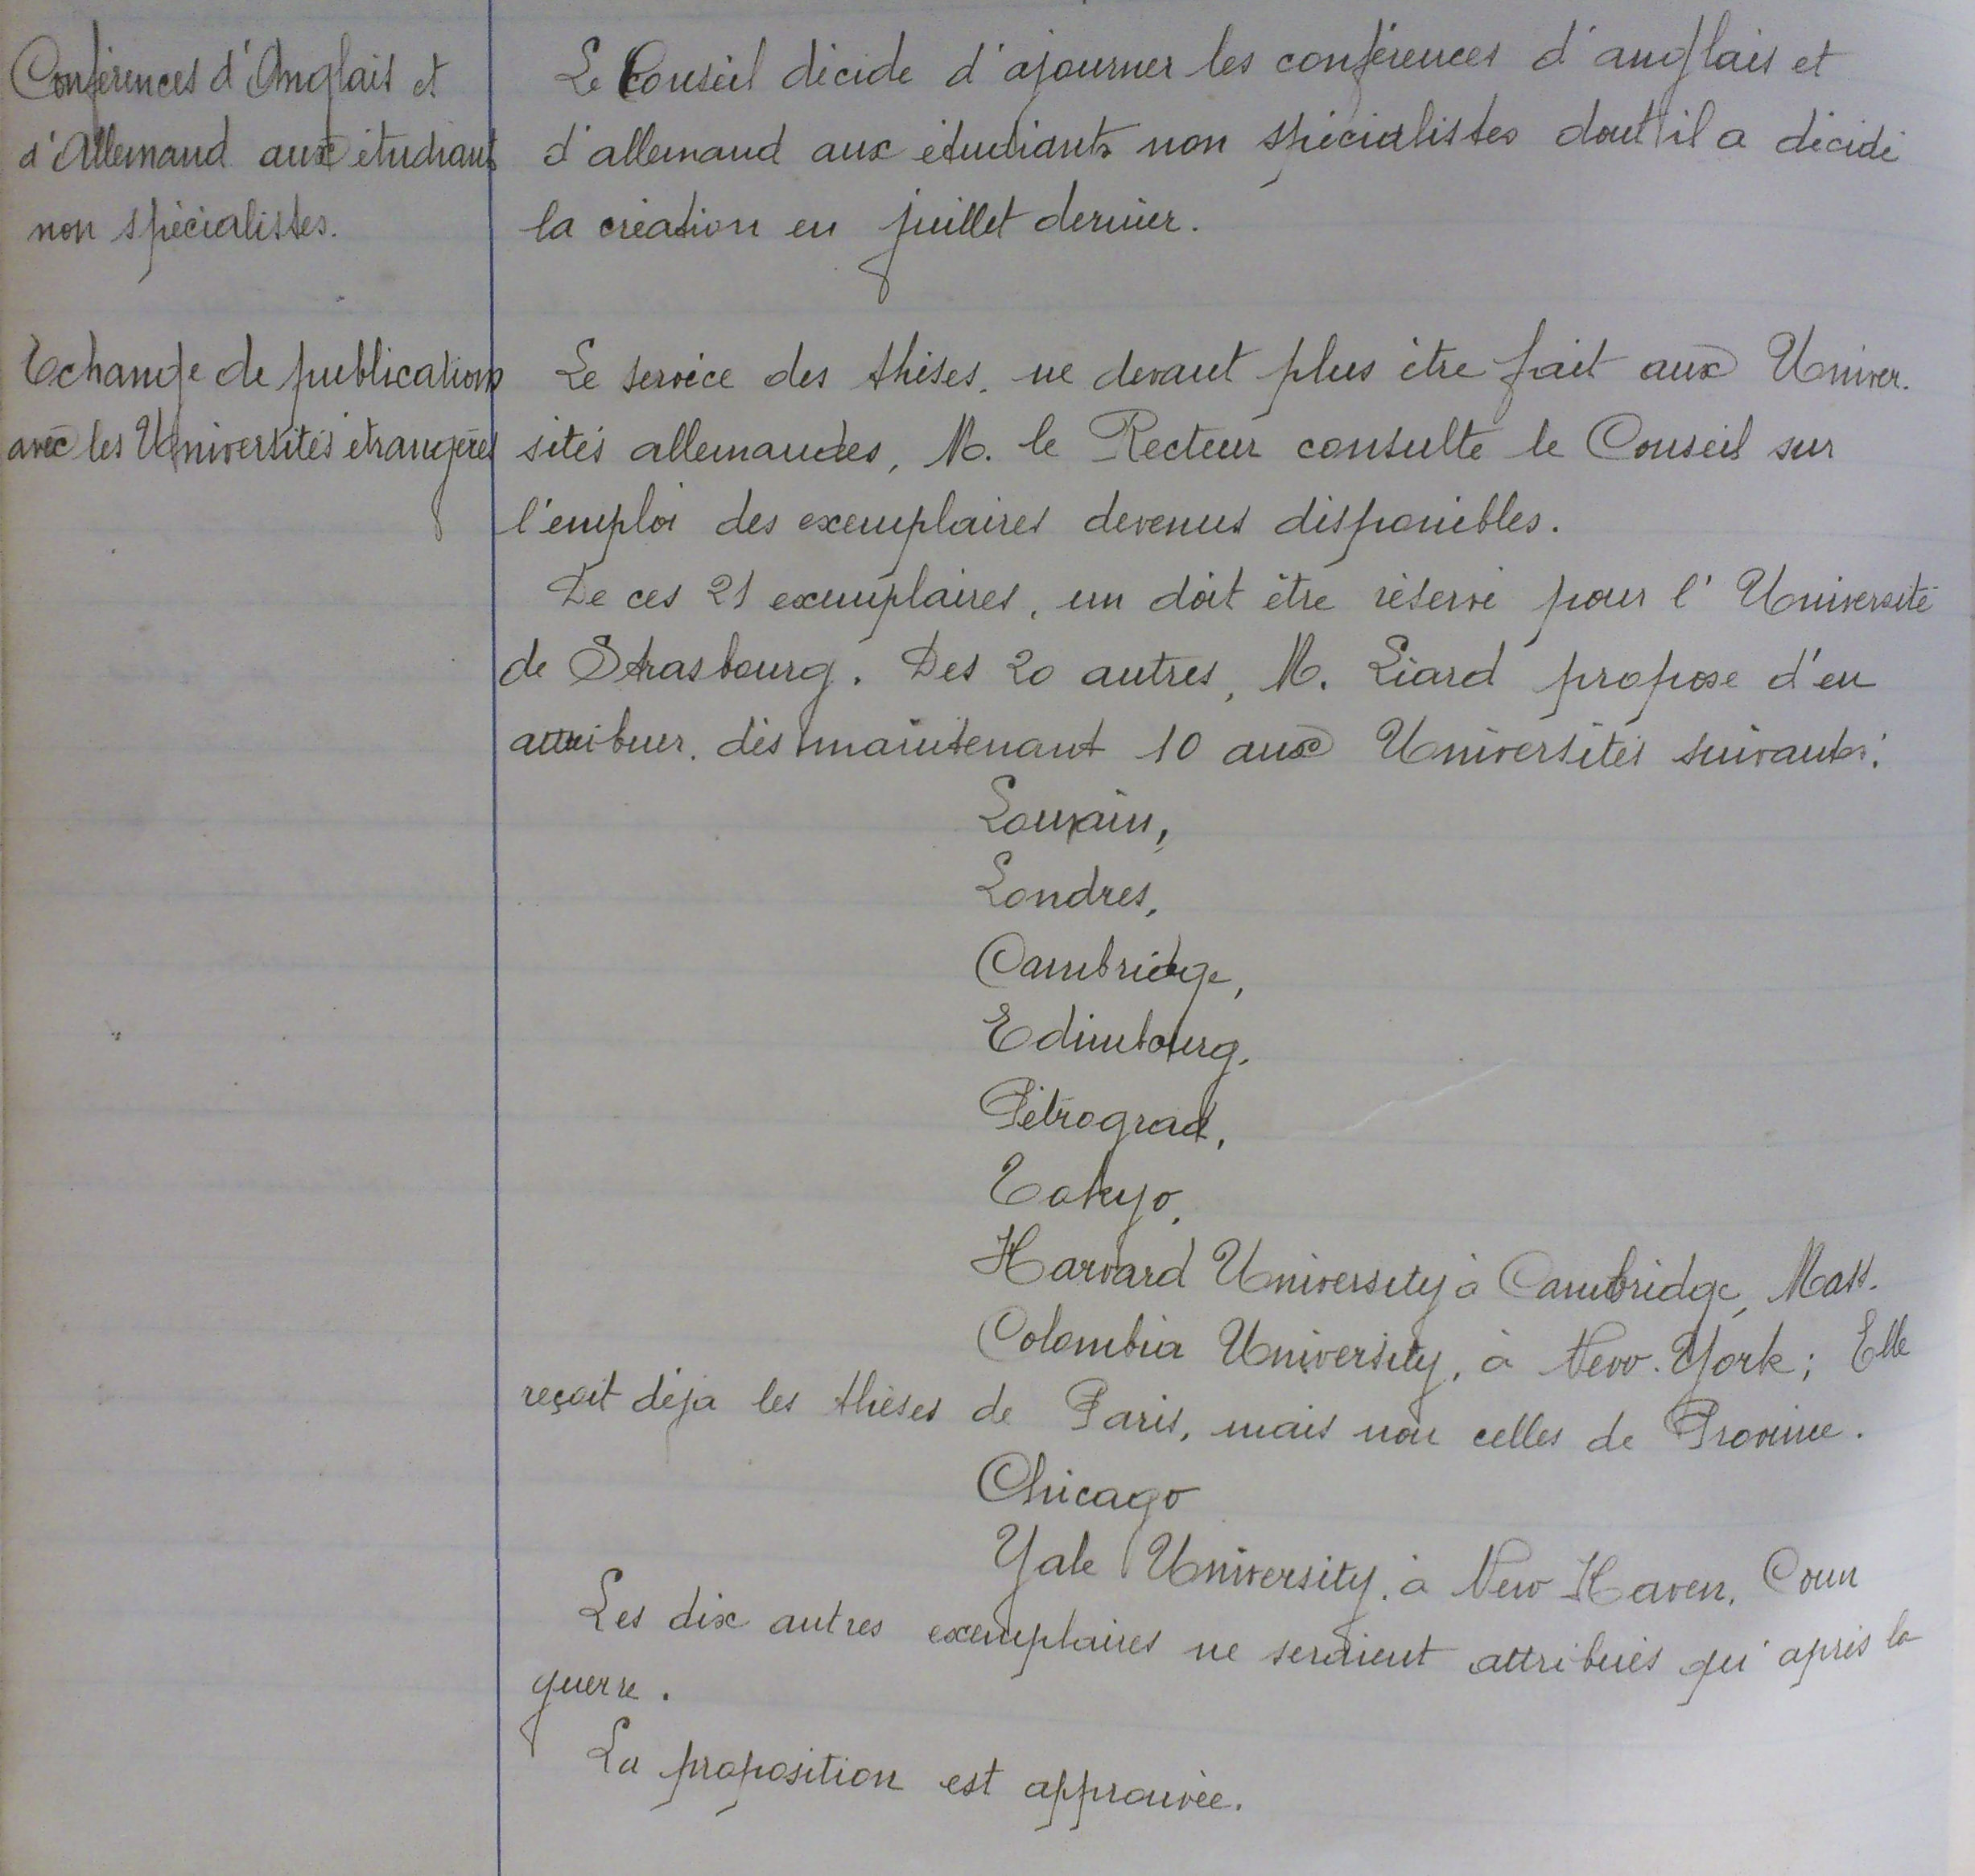 Conférences d'Anglais et
d'Allemand aux étudiants
non spécialistes.
Le Conseil décide d'ajourner les conférences d'anglais et
d'allemand aux étudiants non spécialistes dont il a décidé
la création en juillet dernier.
Echange de publications
avec les Universités étrangères
Le service des thèses, ne devant plus être fait aux Univer-
sités allemandes, M. le Recteur consulte le Conseil sur
l'emploi des exemplaires devenus disponibles.
De ces 21 exemplaires, un doit être réservé pour l'Université
de Strasbourg. Des 20 autres, M. Liard propose d'en
attribuer, dès maintenant 10 aux Universités suivantes:
Louvain,
Londres,
Cambridge,
Edimbourg,
Pétrograd,
Tokyo,
Harvard University à Cambridge, Mass.
Colombia University, à New-York; Elle
reçoit déjà les thèses de Paris, mais non celles de Province.
Chicago
Yale University, à New Haven, Conn
Les dix autres exemplaires ne seraient attribués qu'après la
guerre.
La proposition est approuvée.